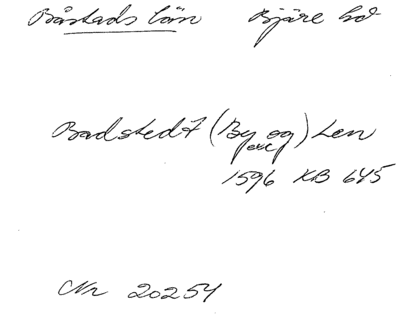 Båstads län Bjäre hd
Badstedt (By og) Len
1596 KB 645
Nr 20254